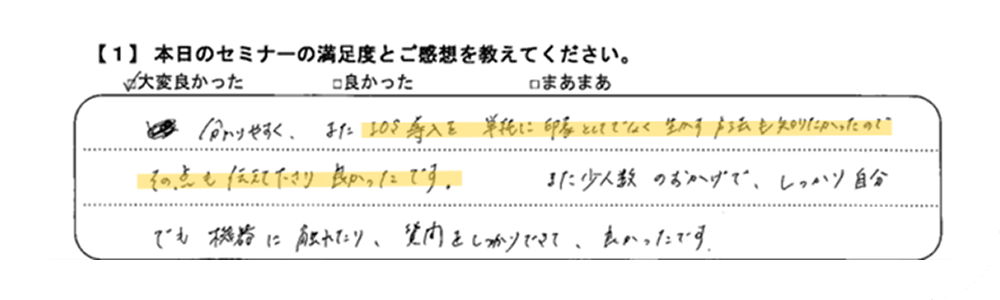 【1】 本日のセミナーの満足度とご感想を教えてください。
☑大変良かった □良かった □まあまあ
分かりやすく、また IOS導入を 単純に 印象としてでなく 生かす 方法も 知りたかったので
その点も 伝えて下さり 良かったです。 また少人数 のおかげで、しっかり 自分
でも 機器に 触れたり、質問をしっかりできて、良かったです。